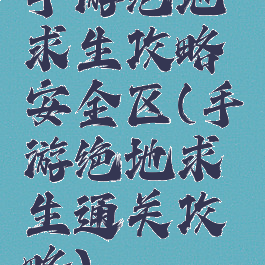 手游绝地
求生攻略
安全区(手
游绝地求
生通关攻
略)